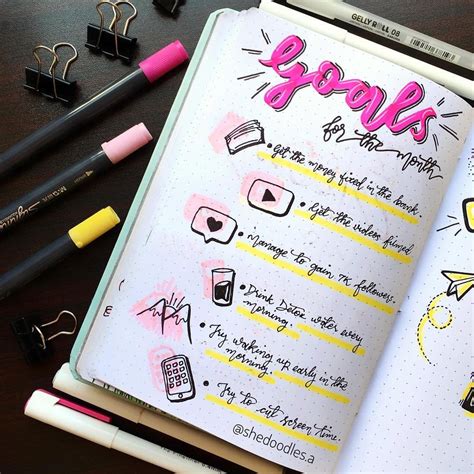 GELLY ROLL 08
Goals
for the month
• Get the money fixed in the bank.
• Get the videos filmed
• Manage to gain 7K followers.
• Drink Detox water every
morning.
• Try waking up early in the
morning.
• Try to cut screen time.
@shedoodles.a